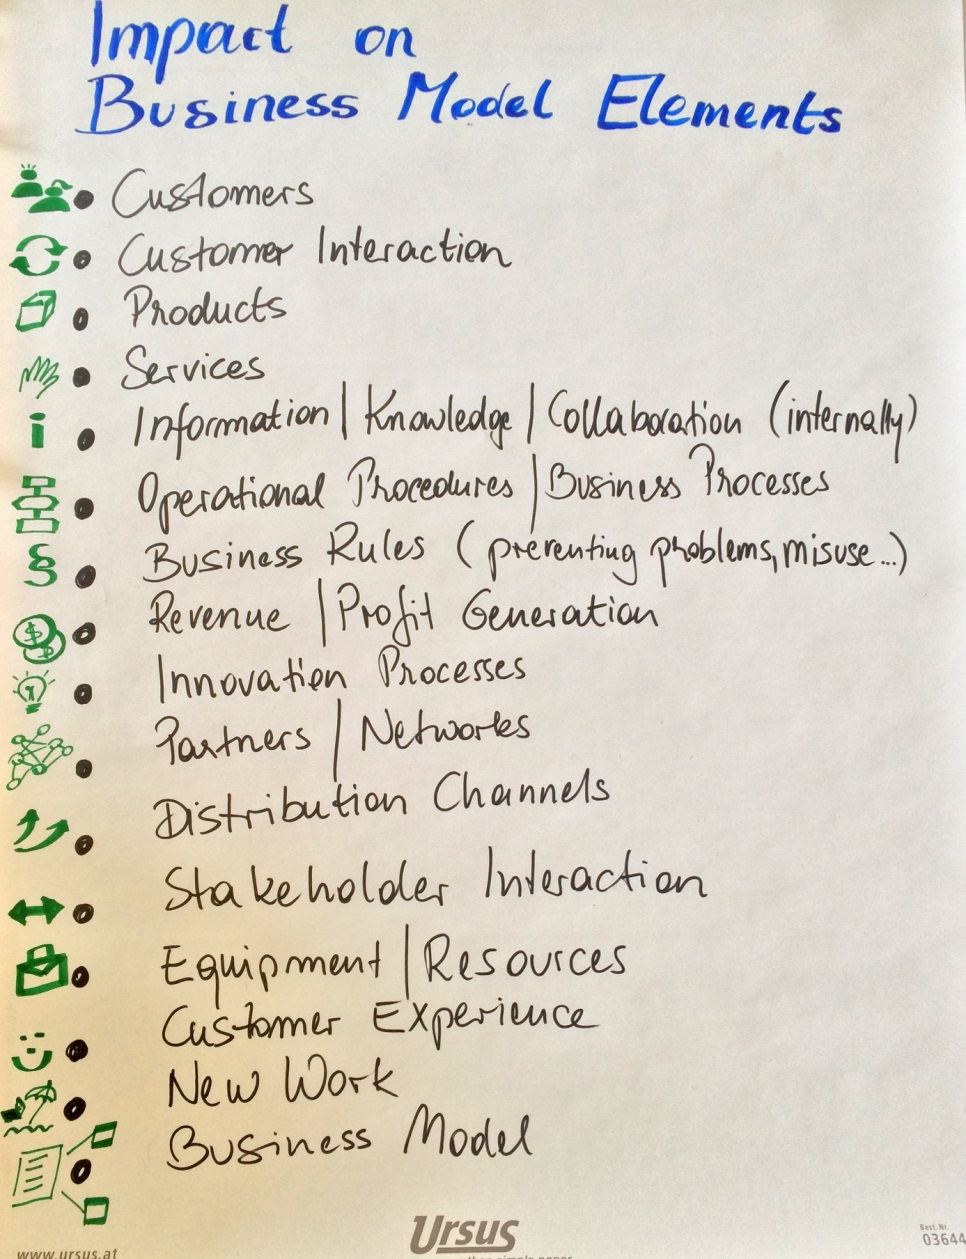 Impact on
Business Model Elements
Customers
Customer Interaction
Products
Services
Information | Knowledge | Collaboration (internally)
Operational Procedures | Business Processes
Business Rules (preventing problems, misuse...)
Revenue | Profit Generation
Innovation Processes
Partners | Networks
Distribution Channels
Stakeholder Interaction
Equipment | Resources
Customer Experience
New Work
Business Model
Ursus
Best. Nr.
03644
www.ursus.at